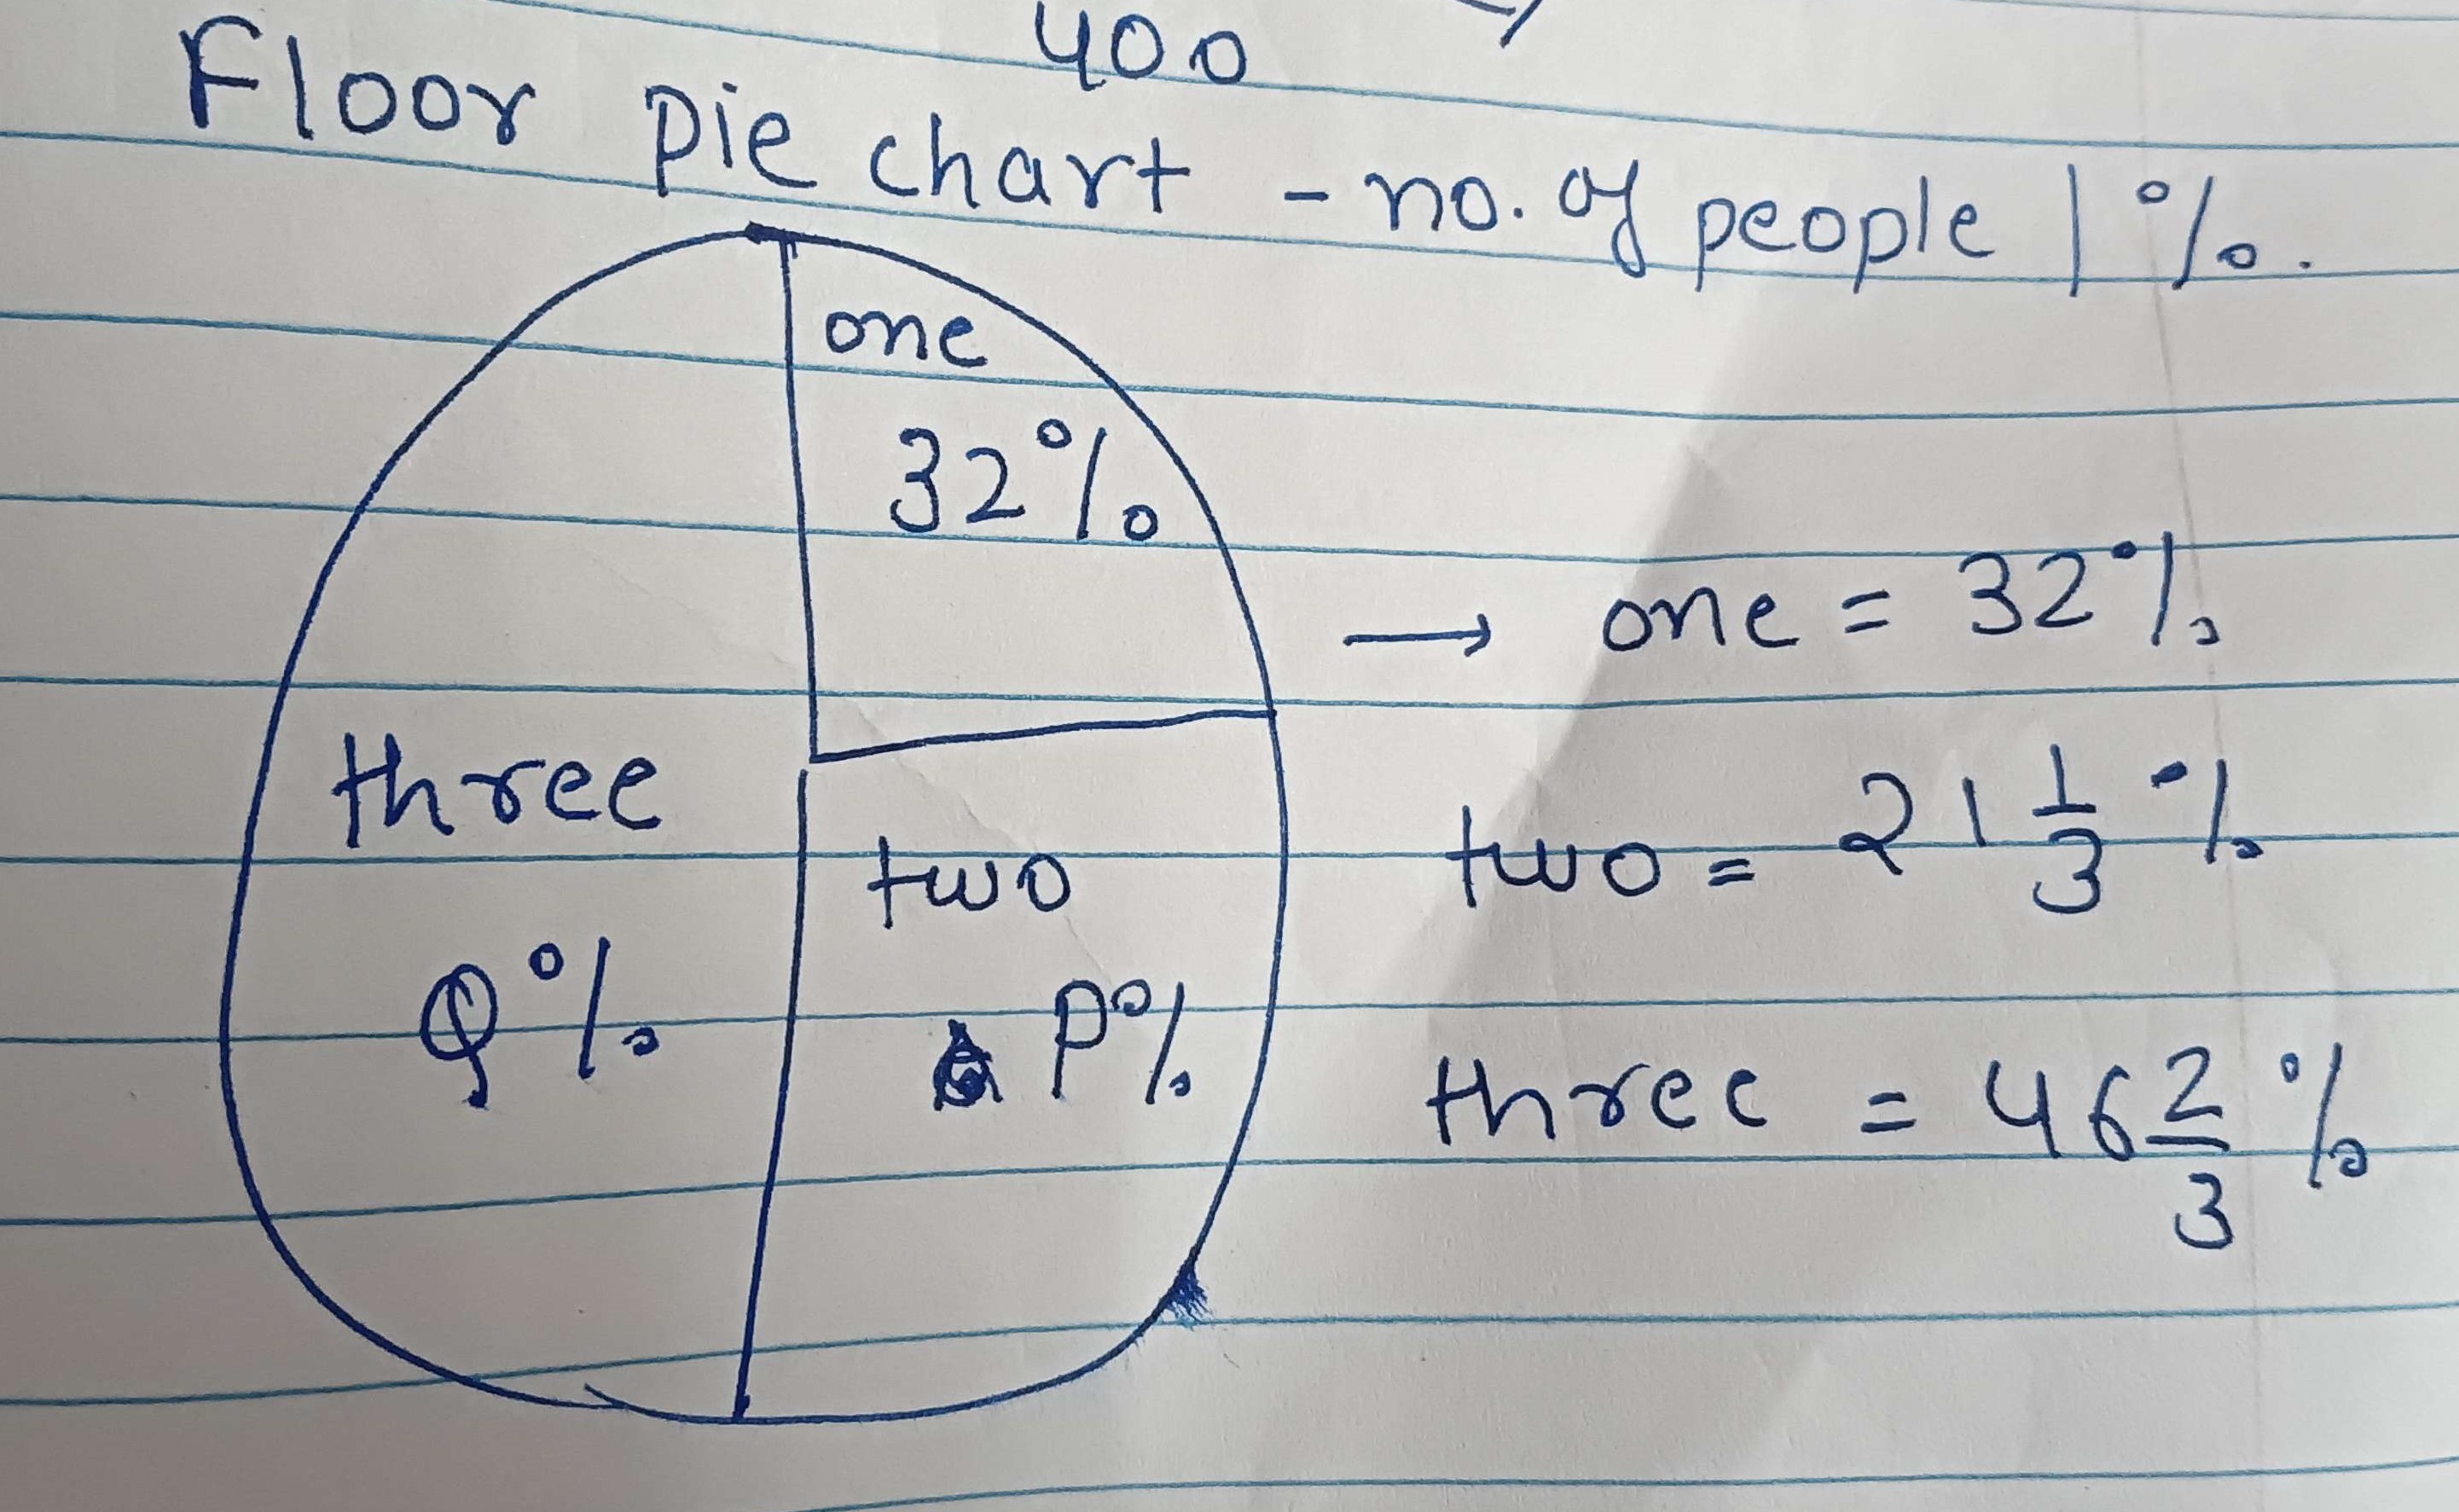 400
Floor Pie chart - no. of people | %.
one
32%
→ one = 32%
three
two = 21 1/3 %
two
Q%
P%
three = 46 2/3 %